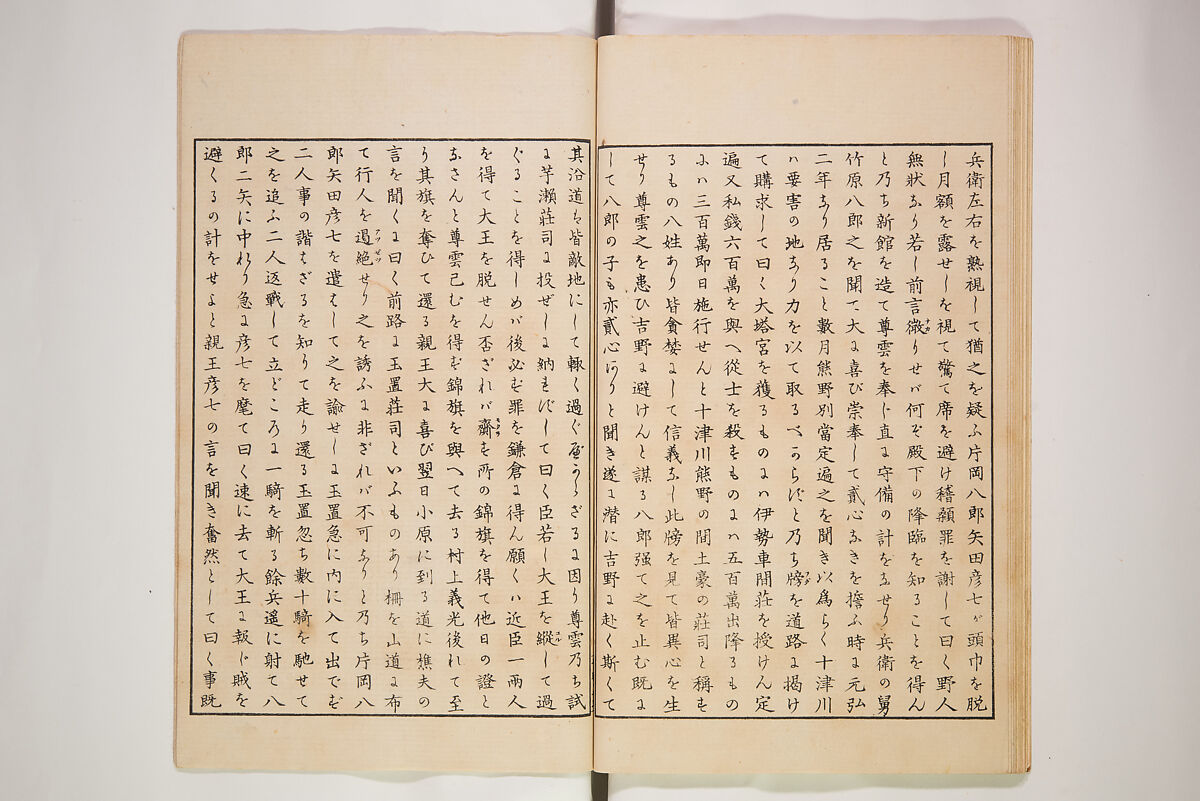 兵衛左右を熟視して猶之を疑ふ片岡八郎矢田彦七が頭巾を脱
し月額を露せしを視て驚て席を避け稽顙罪を謝して曰く野人
無状なり若し前言微りせバ何ぞ殿下の降臨を知ることを得ん
と乃ち新館を造て尊雲を奉じ直に守備の計をなせり兵衛の舅
竹原八郎之を聞て大に喜び崇奉して貳心なきを擔ふ時に元弘
二年なり居ること數月熊野別當定遍之を聞き以為らく十津川
ハ要害の地なり力を以て取るべからずと乃ち牓を道路に掲け
て購求して曰く大塔宮を獲るものにハ伊勢車間荘を授けん定
遍又私錢六百萬を與へ從士を殺すものにハ五百萬出降るもの
にハ三百萬即日施行せんと十津川熊野の間土豪の荘司と稱す
るもの八姓あり皆貪婪にして信義なし此牓を見て皆異心を生
せり尊雲之を患ひ吉野に避けんと謀る八郎强て之を止む既に
して八郎の子も亦貳心ありと聞き遂に潜に吉野に赴く斯くて
其沿道も皆敵地にして輙く過ぐ可らざるに因り尊雲乃ち試
に芋瀬荘司に投ぜしに納れずして曰く臣若し大王を縦して過
ぐることを得しめバ後必ず罪を鎌倉に得ん願くハ近臣一兩人
を得て大王を脱せん否ざれバ齎す所の錦旗を得て他日の證と
なさんと尊雲已むを得ず錦旗を與へて去る村上義光後れて至
り其旗を奪ひて還る親王大に喜び翌日小原に到る道に樵夫の
言を聞くに曰く前路に玉置荘司といふものあり柵を山道に布
て行人を遏絶せり之を誘ふに非ざれバ不可なりと乃ち片岡八
郎矢田彦七を遣はして之を諭せしに玉置急に内に入て出でず
二人事の諧はざるを知りて走り還る玉置忽ち數十騎を馳せて
之を追ふ二人返戰して立どころに一騎を斬る餘兵遙に射て八
郎二矢に中れり急に彦七を麾て曰く速に去て大王に報じ賊を
避くるの計をせよと親王彦七の言を聞き奮然として曰く事既